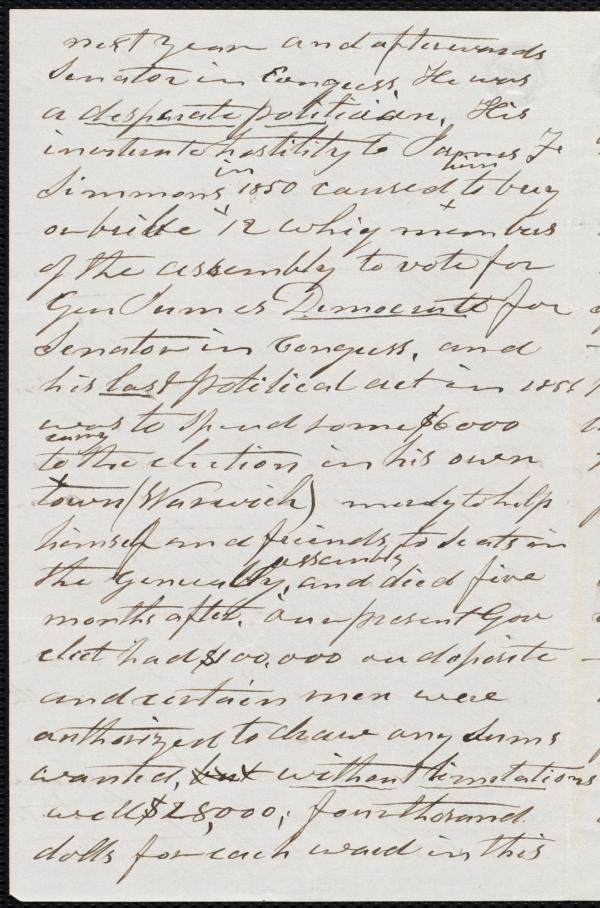 next year and afterwards
Senator in Congress, He was
a desperate politician. His
inveterate hostility to James F
Simmons in 1850 caused him to buy
or bribe 12 whig members
of the assembly to vote for
Gen James Democrat for
Senator in Congress, and
his last political act in 1856
was to spend some $6000
to carry the election in his own
town (Warwick) merely to help
himself and friends, to seats in
the General assembly, and died five
months after. Our present Gov
elect had $100,000 on deposite
and certain men were
authorized to draw any sums
wanted, but without limitations
well $28,000, four thousand
dolls for each ward in this